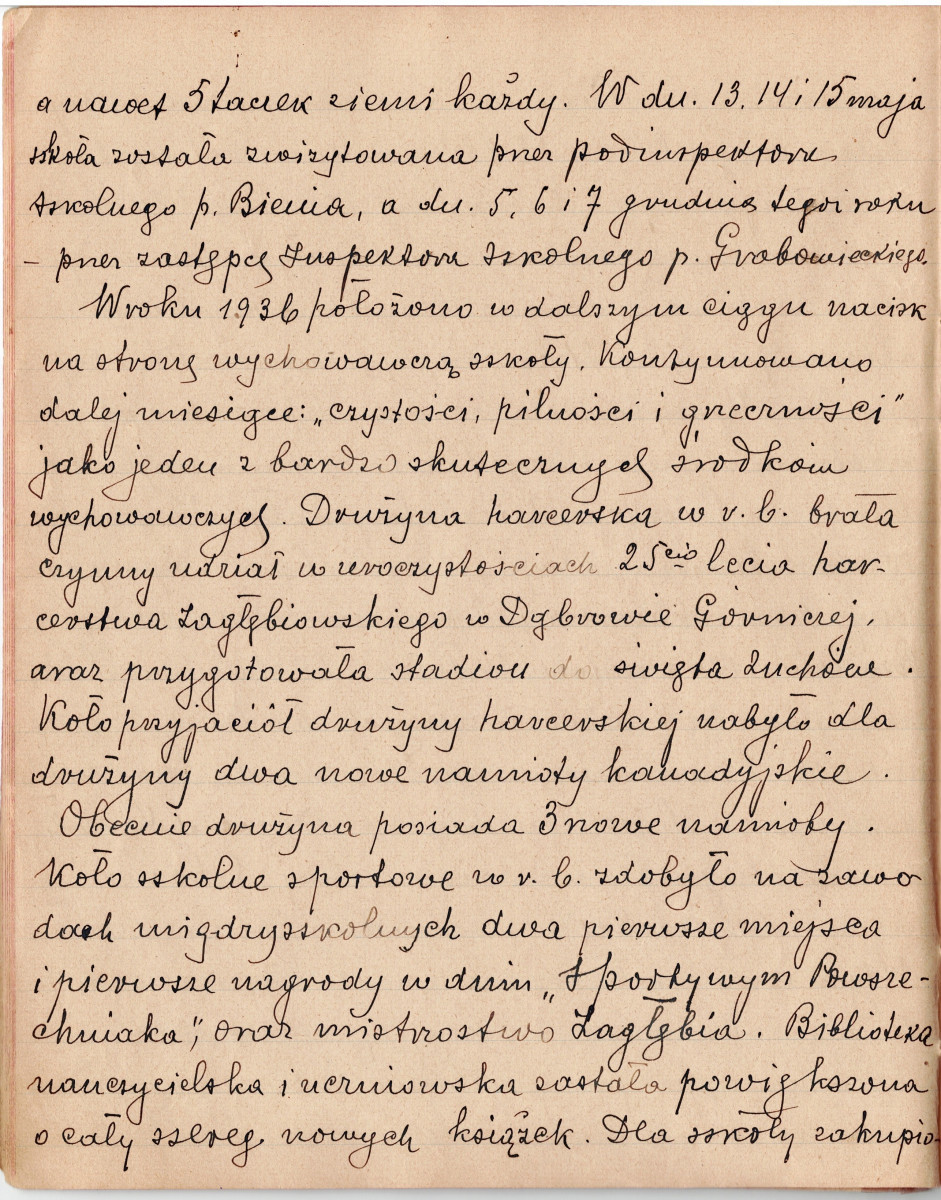 a nawet 5 taczek ziemi każdy. W dn. 13, 14 i 15 maja
szkoła została zwizytowana przez podinspektora
szkolnego p. Bienia, a dn. 5, 6 i 7 grudnia tegoż roku
– przez zastępcę Inspektora szkolnego p. Grabowieckiego.
W roku 1936 położono w dalszym ciągu nacisk
na stronę wychowawczą szkoły. Kontynuowano
dalej miesiące: „czystości, pilności i grzeczności”
jako jeden z bardzo skutecznych środków
wychowawczych. Drużyna harcerska w r. b. brała
czynny udział w uroczystościach 25cio lecia har-
cerstwa Zagłębiowskiego w Dąbrowie Górniczej,
oraz przygotowała stadion do święta Zuchów.
Koło przyjaciół drużyny harcerskiej nabyło dla
drużyny dwa nowe namioty kanadyjskie.
Obecnie drużyna posiada 3 nowe namioty.
Koło szkolne sportowe w r. b. zdobyło na zawo
dach międzyszkolnych dwa pierwsze miejsca
i pierwsze nagrody w dniu „Sportywym Powsze-
chniaka”, oraz mistrzostwo Zagłębia. Biblioteka
nauczycielska i uczniowska została powiększona
o cały szereg nowych książek. Dla szkoły zakupio-